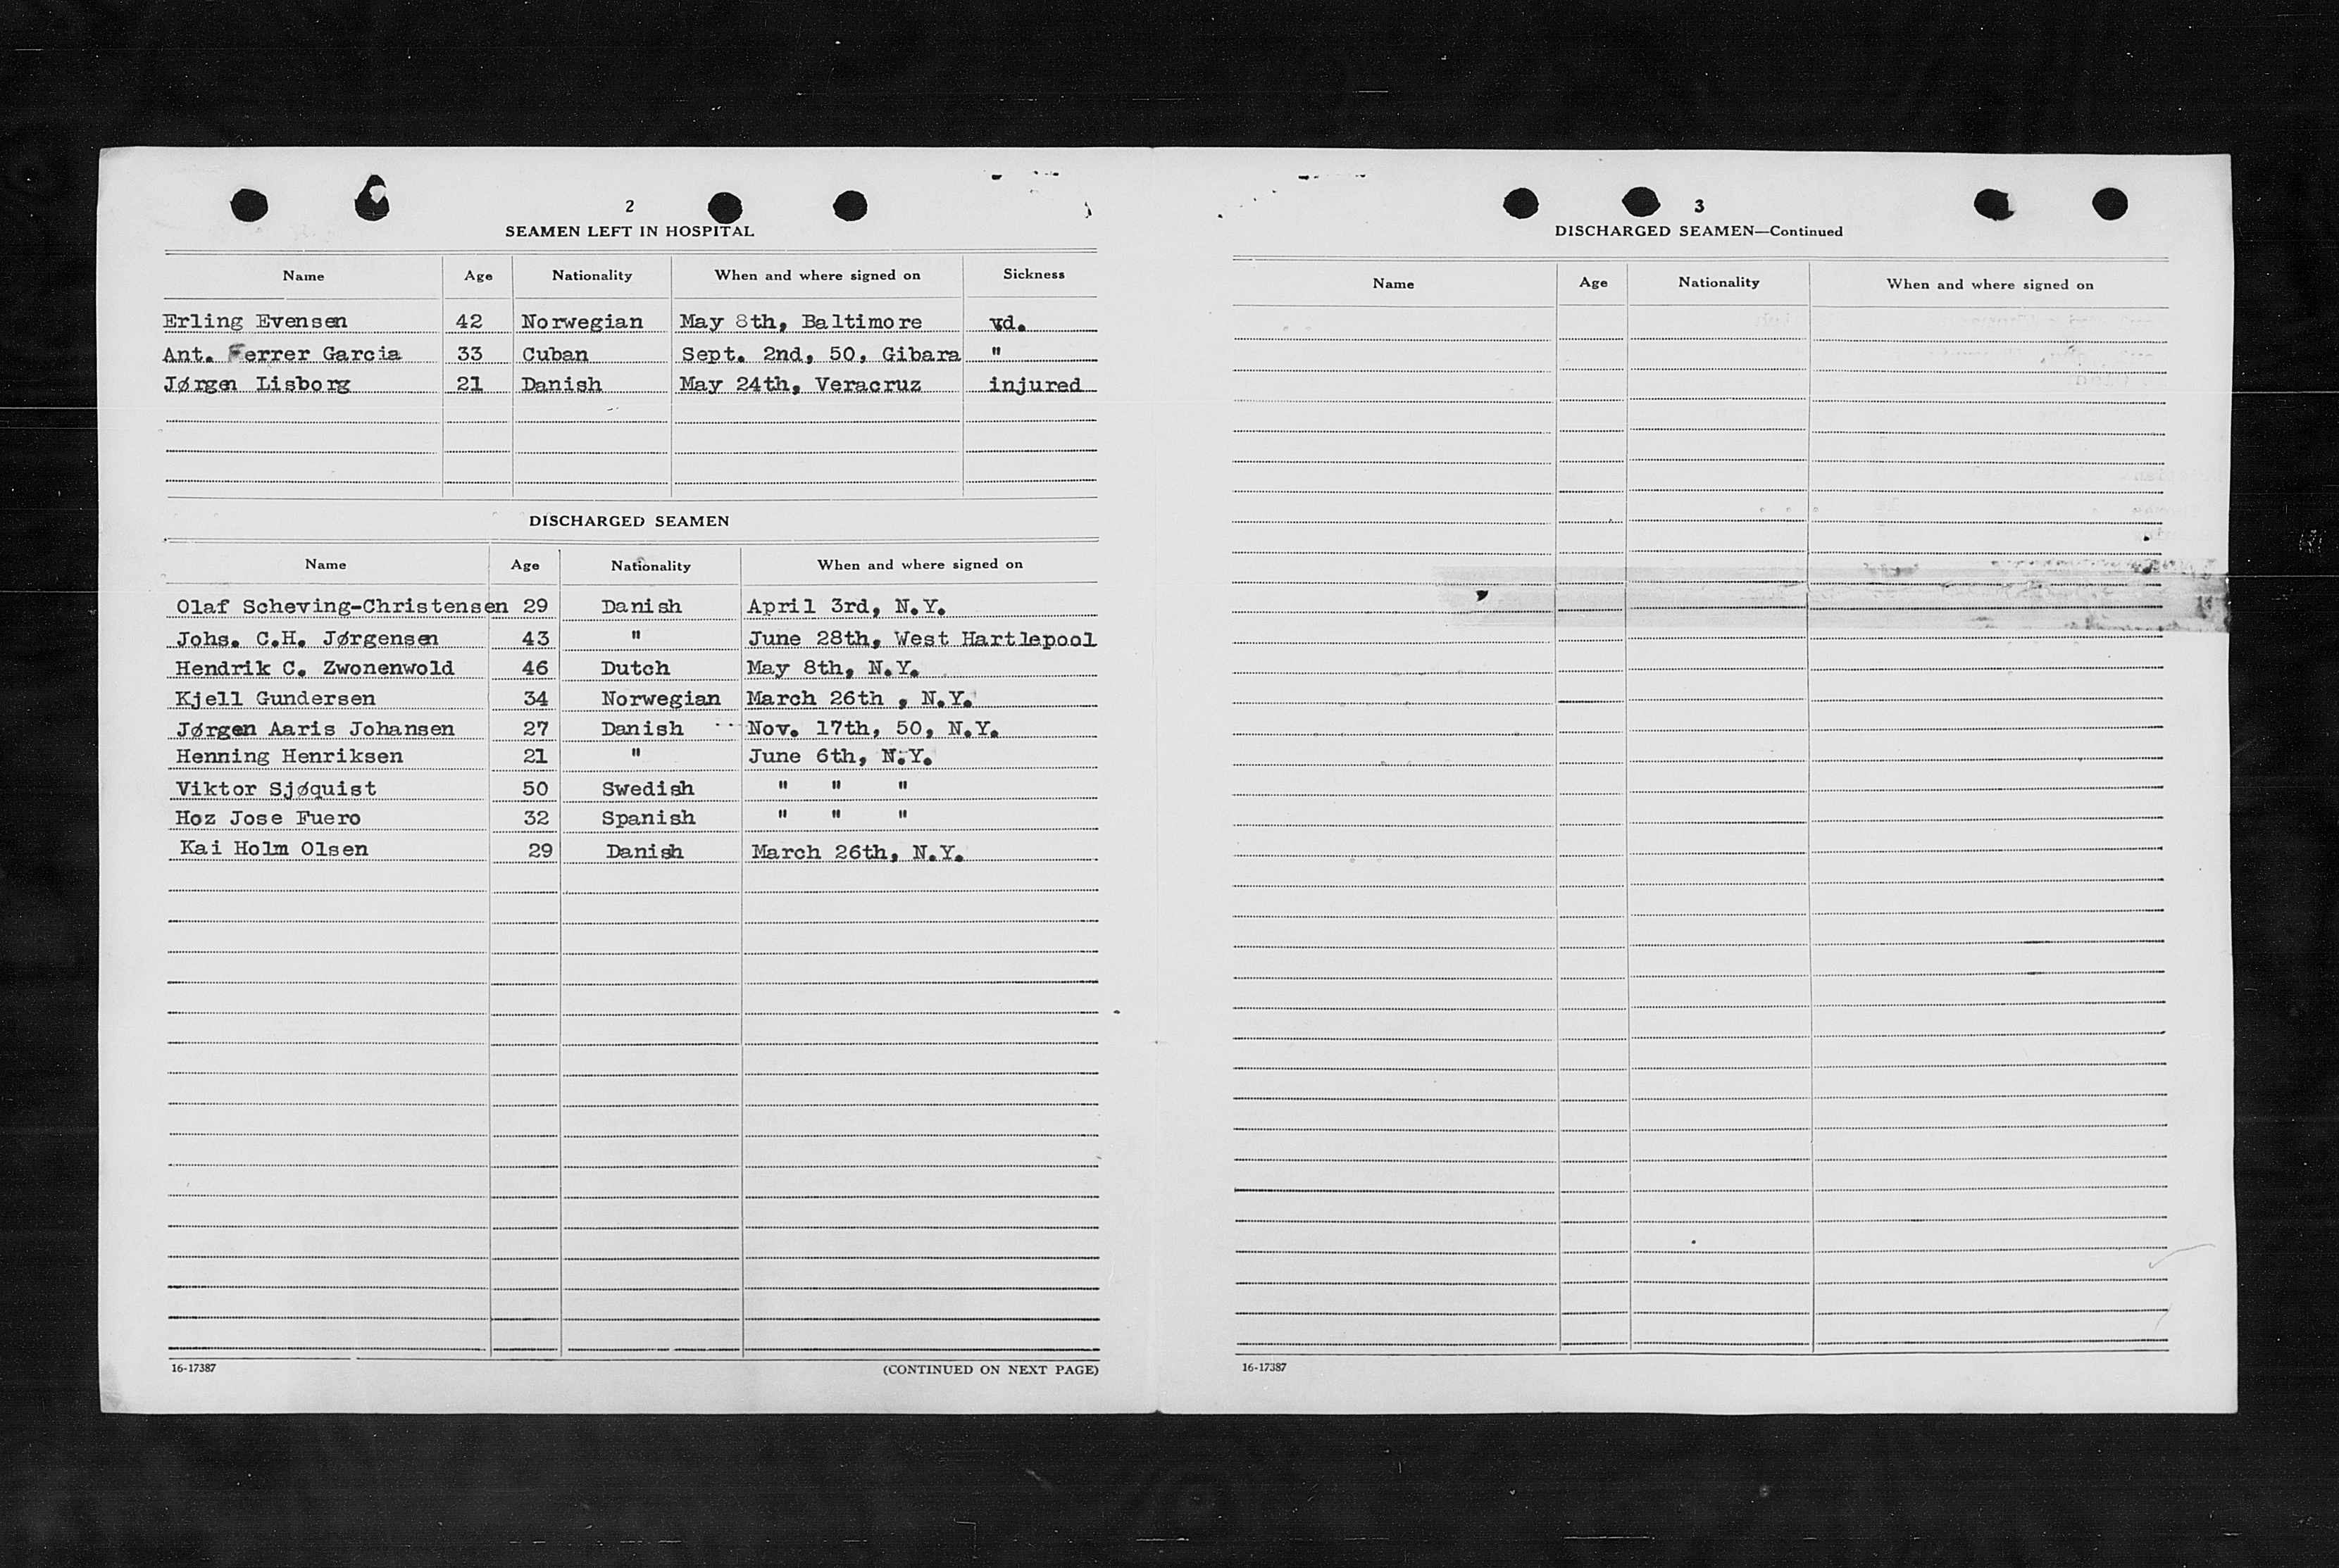 2
SEAMEN LEFT IN HOSPITAL
Name Age Nationality When and where signed on Sickness
Erling Evensen 42 Norwegian May 8th, Baltimore vd.
Ant. Ferrer Garcia 33 Cuban Sept. 2nd, 50, Gibara "
Jørgen Lisborg 21 Danish May 24th, Veracruz injured
DISCHARGED SEAMEN
Name Age Nationality When and where signed on
Olaf Scheving-Christensen 29 Danish April 3rd, N.Y.
Johs. C.H. Jørgensen 43 " June 28th, West Hartlepool
Hendrik C. Zwonenwold 46 Dutch May 8th, N.Y.
Kjell Gundersen 34 Norwegian March 26th , N.Y.
Jørgen Aaris Johansen 27 Danish Nov. 17th, 50, N.Y.
Henning Henriksen 21 " June 6th, N.Y.
Viktor Sjøquist 50 Swedish " " "
Hoz Jose Fuero 32 Spanish " " "
Kai Holm Olsen 29 Danish March 26th, N.Y.
16-17387 (CONTINUED ON NEXT PAGE)
3
DISCHARGED SEAMEN—Continued
Name Age Nationality When and where signed on
16-17387